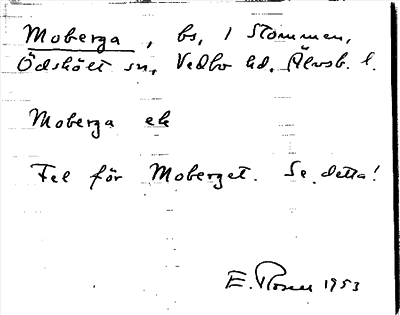 Moberga, bs, 1 Stommen,
Ödskölt sn, Vedbo hd, Älvsb. l.
Moberga ek
Fel för Moberget. Se detta!
E. Rosell 1953